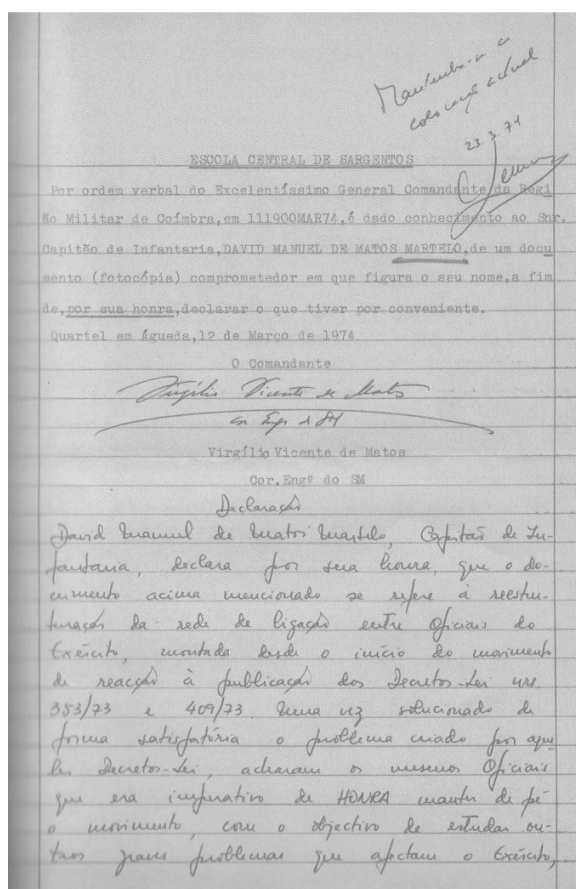 Mantenha-se a
colocação actual
23.3.74
ESCOLA CENTRAL DE SARGENTOS
Por ordem verbal do Excelentíssimo General Comandante da Regi
ão Militar de Coímbra,em 111900MAR74,é dado conhecimento ao Snr.
Capitão de Infantaria,DAVID MANUEL DE MATOS MARTELO,de um docu
mento (fotocópia) comprometedor em que figura o seu nome,a fim
de,por sua honra,declarar o que tiver por conveniente.
Quartel em Águeda,12 de Março de 1974
O Comandante
Virgílio Vicente de Matos
Cor. Engº do SM
Virgílio Vicente de Matos
Cor.Engº do SM
Declaração
David Manuel de Matos Martelo, Capitão de In-
fantaria, declara por sua honra, que o do-
cumento acima mencionado se refere à reestru-
turação da rede de ligação entre Oficiais do
Exército, montada desde o início do movimento
de reacção à publicação dos Decretos-Lei nrs
353/73 e 409/73. Uma vez solucionado de
forma satisfatória o problema criado por aque
les Decretos-Lei, acharam os mesmos Oficiais
que era imperativo de HONRA manter de pé
o movimento, com o objectivo de estudar ou-
tros graves problemas que afectam o Exército,